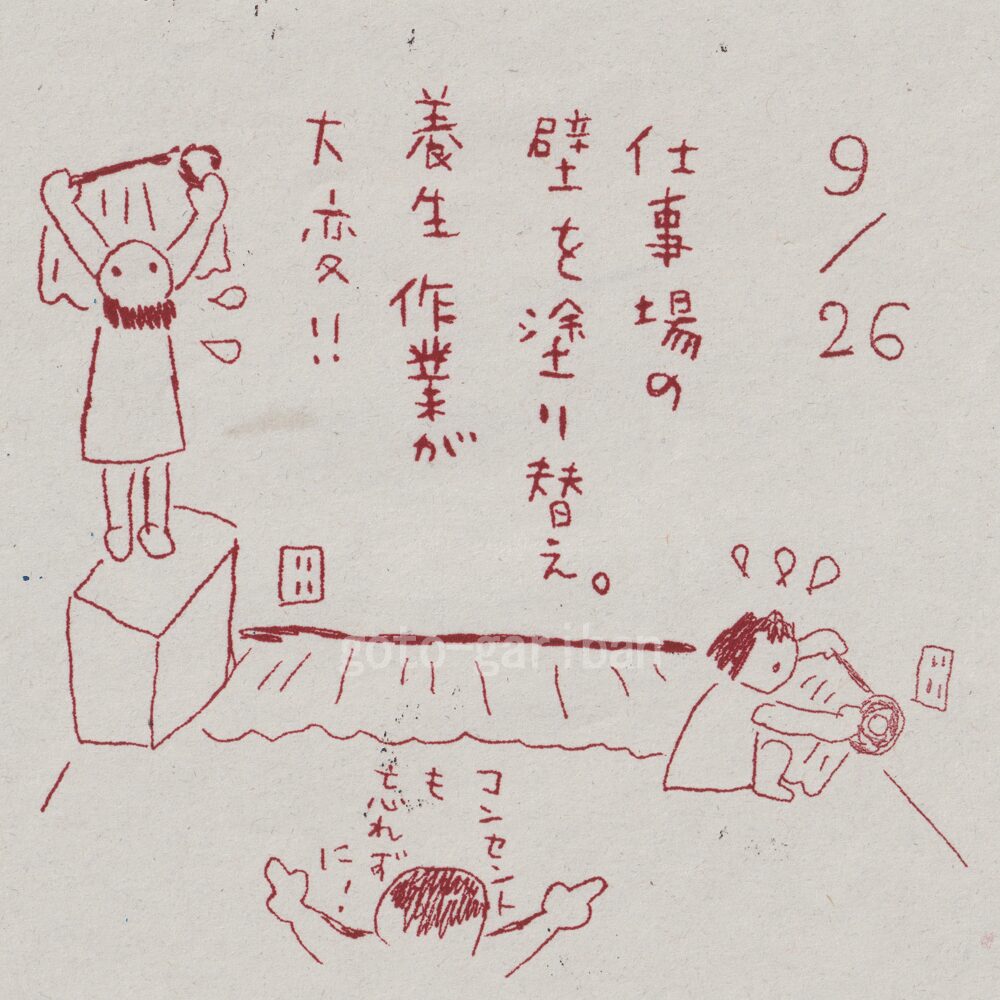 9/26
仕事場の
壁を塗り替え。
養生作業が
大変!!
goto-gariban
コンセント
も
忘れず
に!